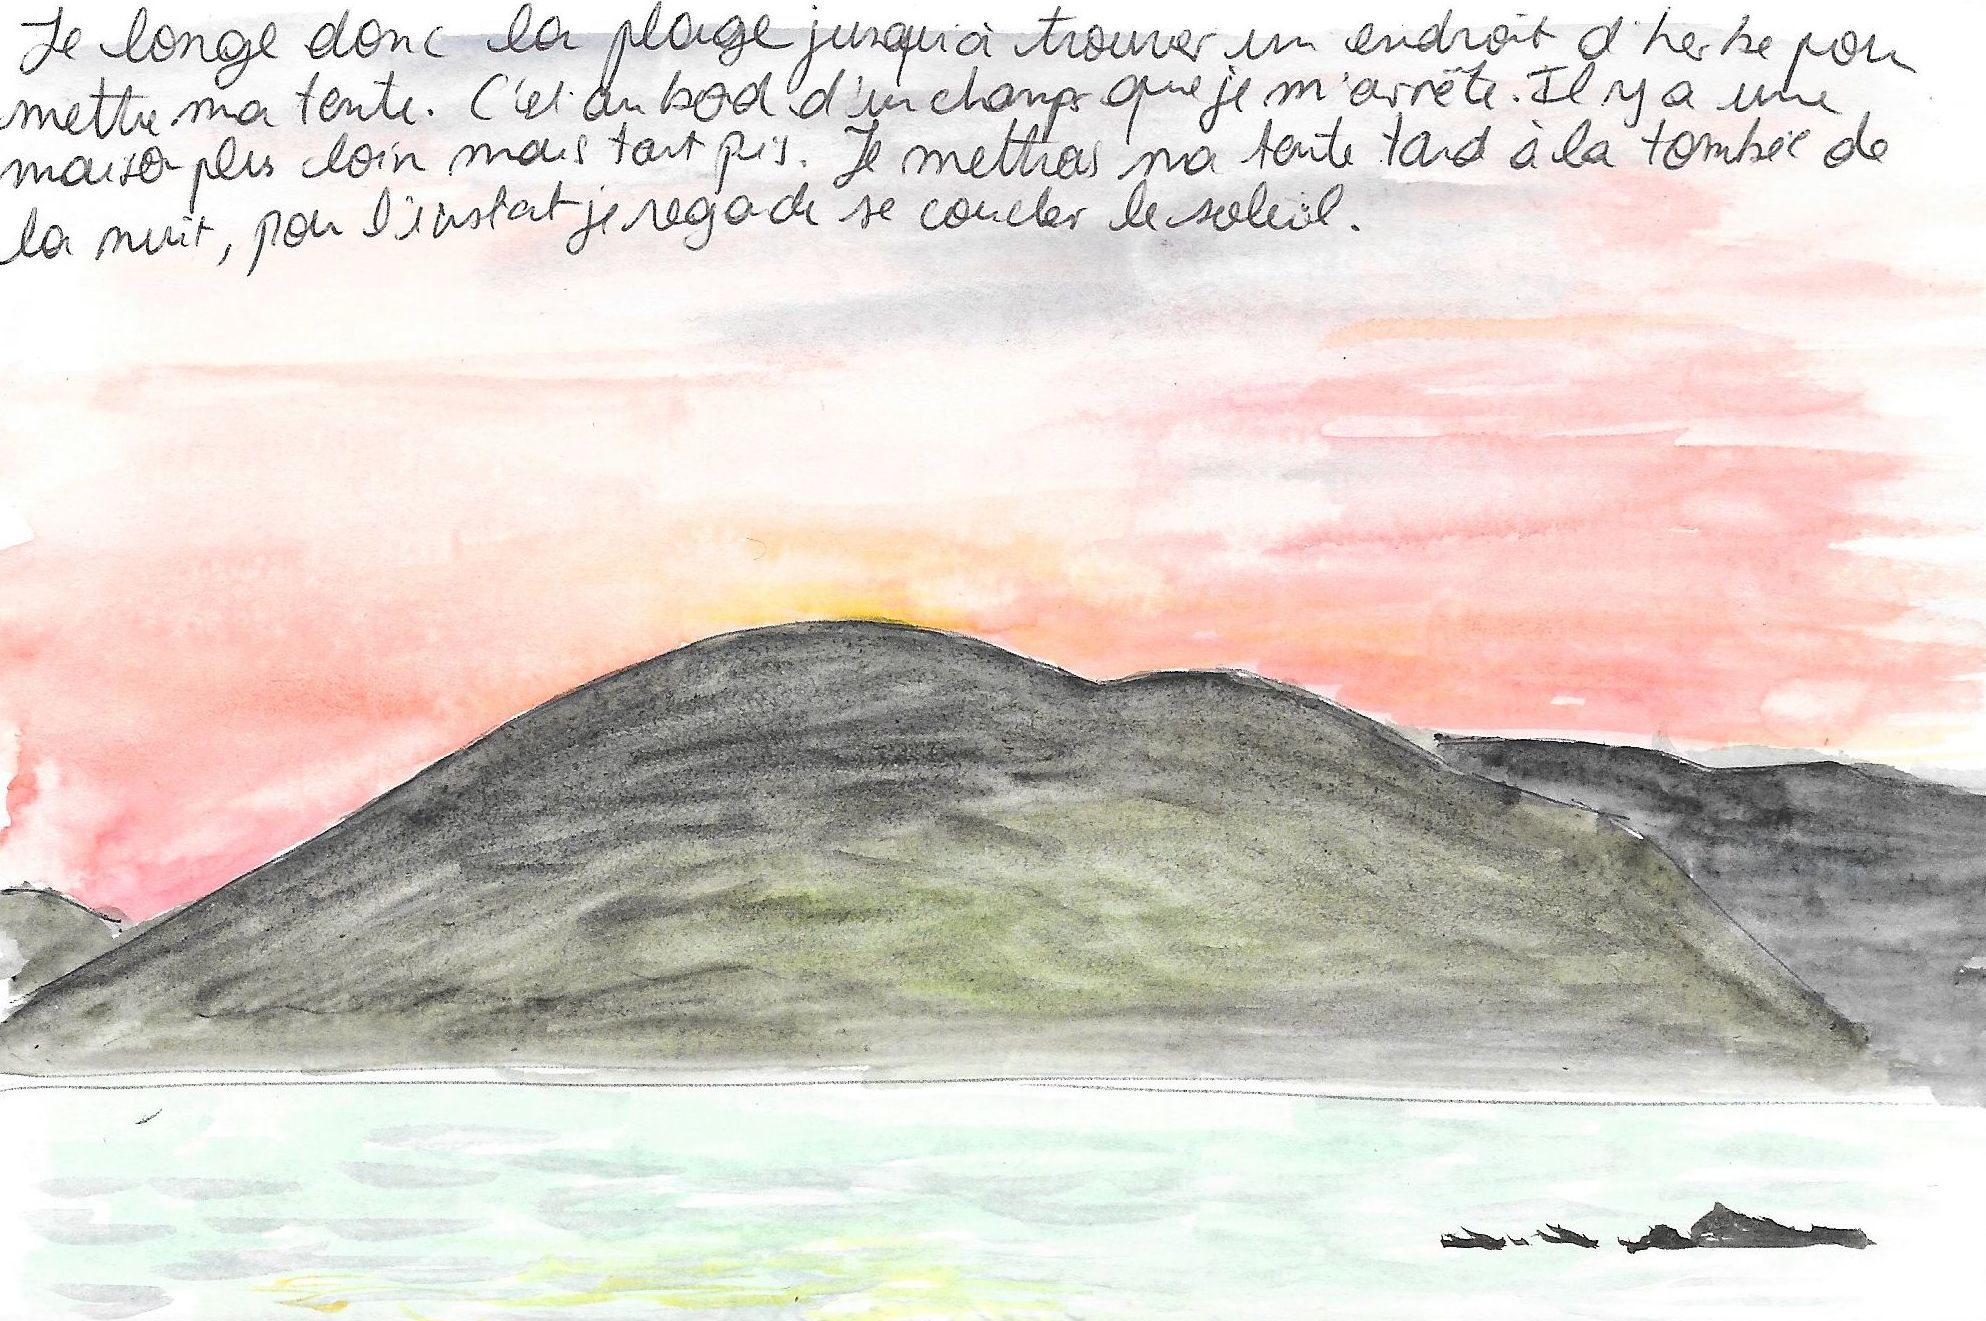 Je longe donc la plage jusqu'à trouver un endroit d'herbe pour
mettre ma tente. C'est au bord d'un champs que je m'arrête. Il y a une
maison plus loin mais tant pis. Je mettrai ma tente tard à la tombée de
la nuit, pour l'instant je regarde se coucher le soleil.